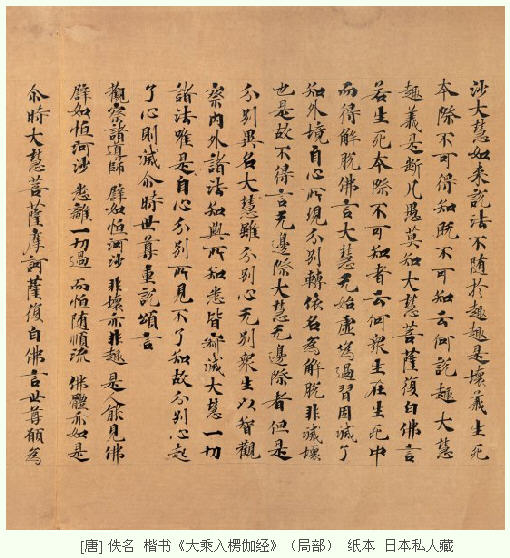 沙大慧如来說法不随於趣趣是壞義生死
本際不可得知既不可知云何說趣大慧
趣義是断凡愚莫知大慧菩薩復白佛言
若生死本際不可知者云何衆生在生死中
而得解脫佛言大慧无始虚偽過習因滅了
知外境自心所現分別轉依名為解脫非滅壞
也是故不得言无邊際大慧无邊際者但是
分別異名大慧離分別心无別衆生以智觀
察内外諸法知與所知悉皆寂滅大慧一切
諸法唯是自心分別所見不了知故分別心起
了心則滅尒時世尊重說頌言
觀察諸導師 譬如恒河沙 非壞亦非趣 是人能見佛
譬如恒河沙 悉離一切過 而恒随順流 佛體亦如是
尒時大慧菩薩摩訶薩復白佛言世尊願為
[唐] 佚名 楷书《大乘入楞伽经》（局部） 纸本 日本私人藏